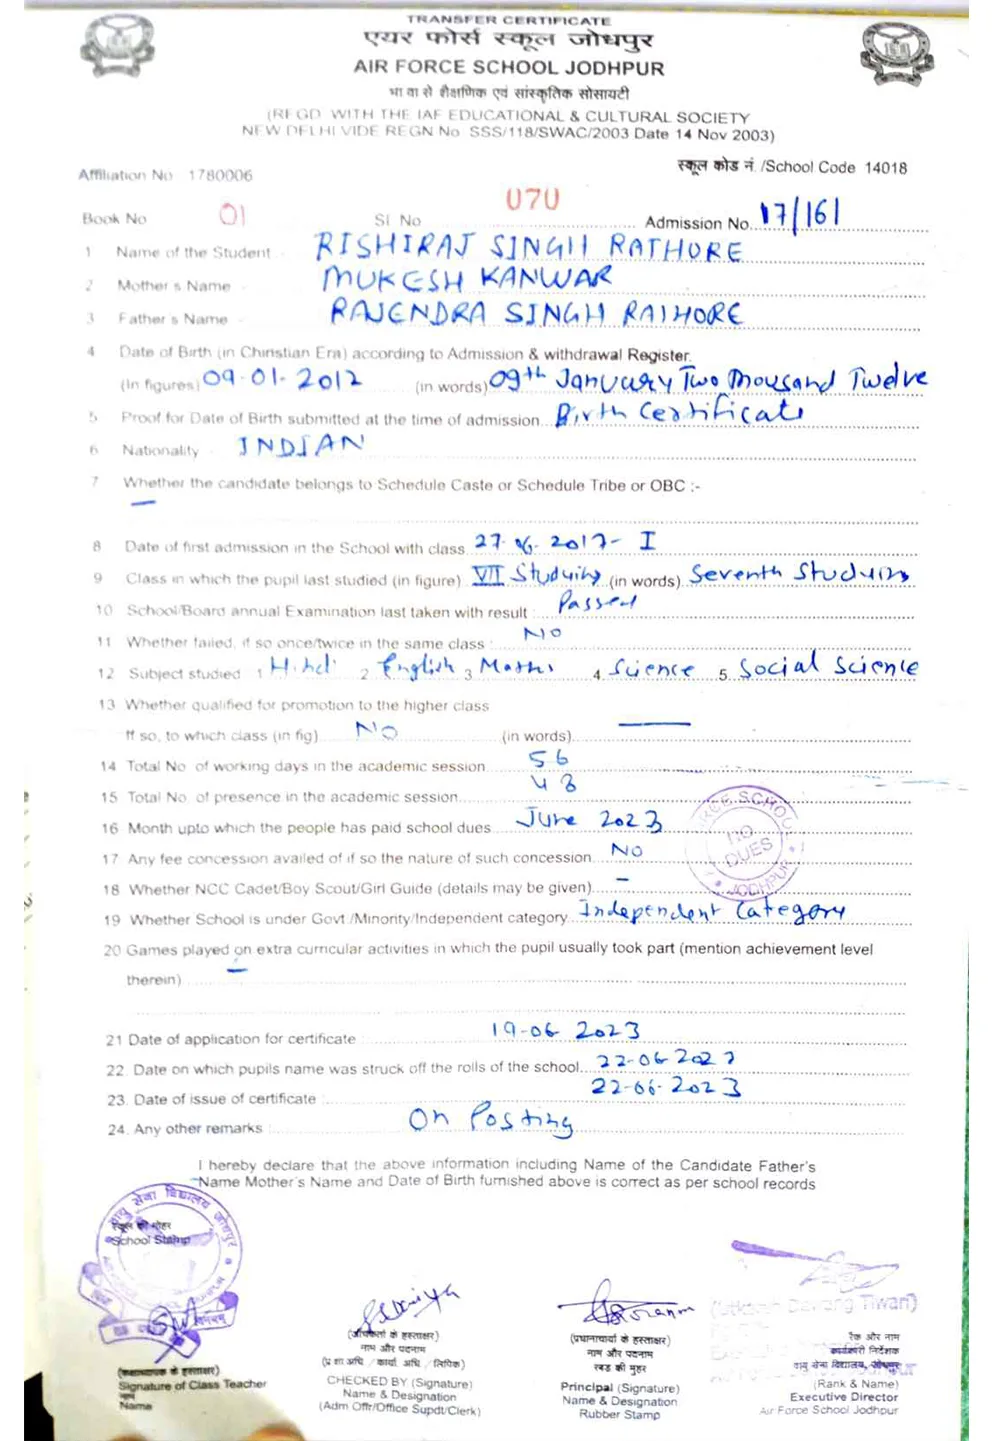 TRANSFER CERTIFICATE
एयर फोर्स स्कूल जोधपुर
AIR FORCE SCHOOL JODHPUR
भा वा से शैक्षणिक एवं सांस्कृतिक सोसायटी
(REGD. WITH THE IAF EDUCATIONAL & CULTURAL SOCIETY
NEW DELHI VIDE REGN No. SSS/118/SWAC/2003 Date 14 Nov 2003)
स्कूल कोड नं. /School Code 14018
Affiliation No 1780006
Book No 01 Sl No 070 Admission No. 17/161
1 Name of the Student :- RISHIRAJ SINGH RATHORE
2 Mother's Name - MUKESH KANWAR
3 Father's Name - RAJENDRA SINGH RATHORE
4 Date of Birth (in Chiristian Era) according to Admission & withdrawal Register.
(In figures) 09-01-2012 (in words) 09th January Two Thousand Twelve
5 Proof for Date of Birth submitted at the time of admission Birth Certificate
6 Nationality INDIAN
7 Whether the candidate belongs to Schedule Caste or Schedule Tribe or OBC :-
—
8 Date of first admission in the School with class 27-06-2017- I
9 Class in which the pupil last studied (in figure) VII Studying (in words) Seventh Studying
10 School/Board annual Examination last taken with result : Passed
11 Whether failed, if so once/twice in the same class : NO
12 Subject studied 1 Hindi 2 English 3 Maths 4 Science 5. Social Science
13 Whether qualified for promotion to the higher class
If so, to which class (in fig) NO (in words) —
14 Total No. of working days in the academic session 56
15 Total No. of presence in the academic session 43
16 Month upto which the people has paid school dues June 2023
17 Any fee concession availed of if so the nature of such concession NO
NO DUES
JODHPUR
18 Whether NCC Cadet/Boy Scout/Girl Guide (details may be given) —
19 Whether School is under Govt /Minority/Independent category Independent Category
20 Games played on extra curricular activities in which the pupil usually took part (mention achievement level
therein) —
21 Date of application for certificate 19-06-2023
22. Date on which pupils name was struck off the rolls of the school 22-06-2023
23. Date of issue of certificate : 22-06-2023
24. Any other remarks : On Posting
I hereby declare that the above information including Name of the Candidate Father's
Name Mother's Name and Date of Birth furnished above is correct as per school records
वायु सेना विद्यालय जोधपुर
स्कूल की मोहर
School Stamp
Tiwari)
(कक्षाध्यापक के हस्ताक्षर)
Signature of Class Teacher
नाम
Name
नाम और पदनाम
(प्र शा अधि / कार्या अधि / लिपिक)
CHECKED BY (Signature)
Name & Designation
(Adm Offr/Office Supdt/Clerk)
(प्रधानाचार्या के हस्ताक्षर)
नाम और पदनाम
रबड़ की मुहर
Principal (Signature)
Name & Designation
Rubber Stamp
रैंक और नाम
कार्यकारी निर्देशक
वायु सेना विद्यालय, जोधपुर
(Rank & Name)
Executive Director
Air Force School Jodhpur